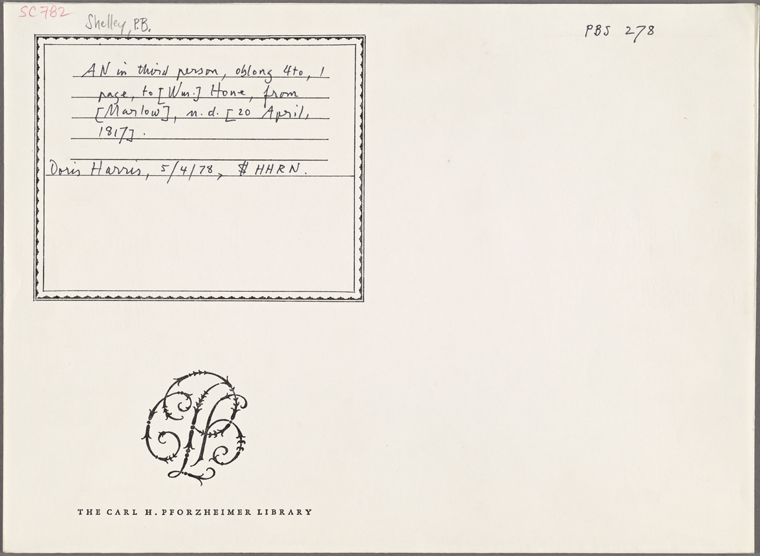 SC 782
Shelley, P.B.
PBS 278
AN in third person, oblong 4to, 1
page, to [Wm.] Hone, from
[Marlow], n.d. [20 April,
1817].
Doris Harris, 5/4/78, $ HHRN.
THE CARL H. PFORZHEIMER LIBRARY